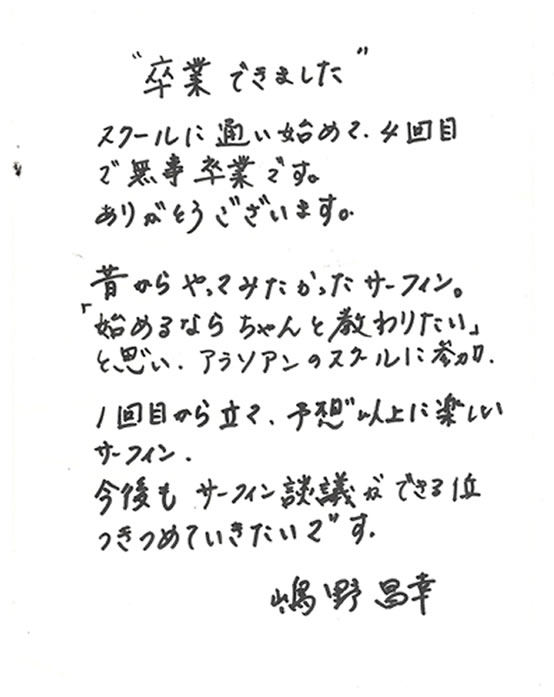 "卒業できました"
スクールに通い始めて、4回目
で無事卒業です。
ありがとうございます。
昔からやってみたかったサーフィン。
「始めるならちゃんと教わりたい」
と思い、アラソアンのスクールに参加。
1回目から立て、予想以上に楽しい
サーフィン。
今後もサーフィン談議ができる位
つきつめていきたいです。
嶋野昌幸